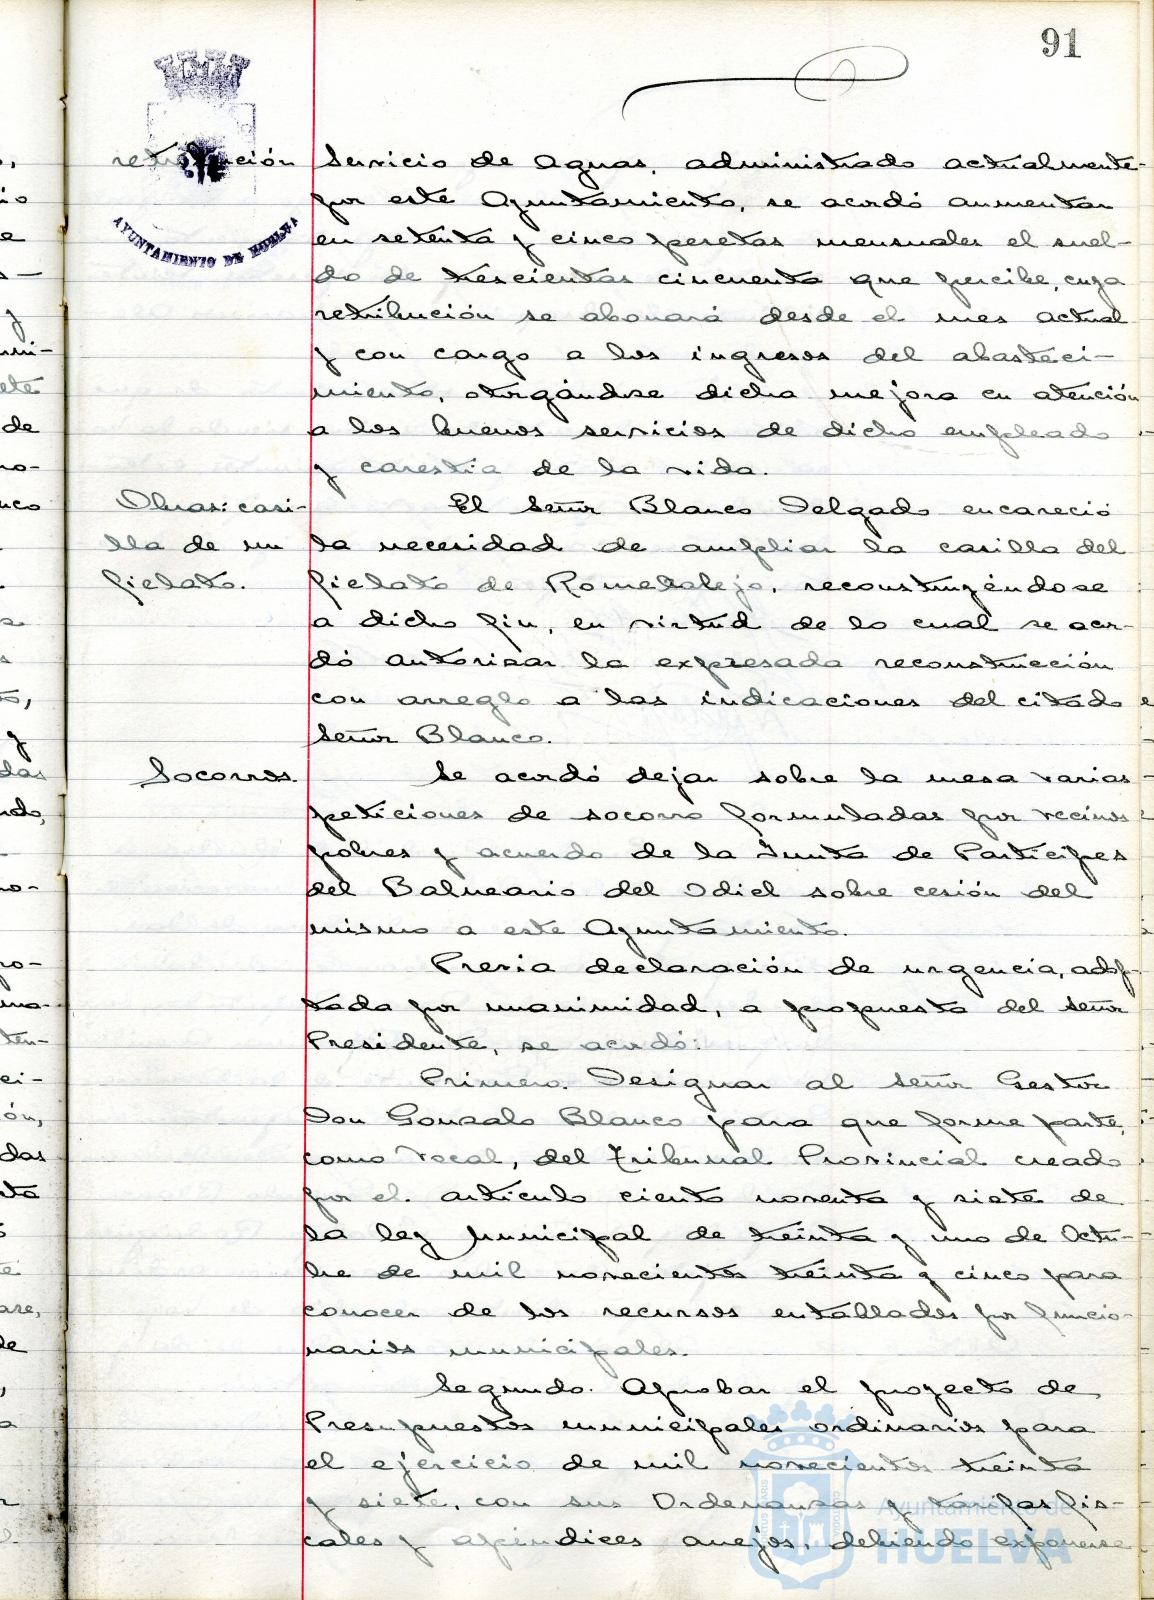 91
AYUNTAMIENTO DE HUELVA
retribución
Servicio de Aguas, administrado actualmente
por este Ayuntamiento, se acordó aumentar
en setenta y cinco pesetas mensuales el suel-
do de trescientas cincuenta que percibe, cuya
retribución se abonará desde el mes actual
y con cargo a los ingresos del abasteci-
miento, otorgándose dicha mejora en atención
a los buenos servicios de dicho empleado
y carestía de la vida.
Obras: casi-
lla de un
fielato.
El Señor Blanco Delgado encareció
la necesidad de ampliar la casilla del
fielato de Romeralejo, reconstruyéndose
a dicho fin, en virtud de lo cual se acor-
dó autorizar la expresada reconstrucción
con arreglo a las indicaciones del citado
Señor Blanco.
Socorros.
Se acordó dejar sobre la mesa varias
peticiones de socorro formuladas por vecinos
pobres y acuerdo de la Junta de Partícipes
del Balneario del Odiel sobre cesión del
mismo a este Ayuntamiento.
Previa declaración de urgencia, adop-
tada por unanimidad, a propuesta del Señor
Presidente, se acordó:
Primero. Designar al señor Gestor
Don Gonzalo Blanco para que forme parte,
como Vocal, del Tribunal Provincial creado
por el artículo ciento noventa y siete de
la ley Municipal de treinta y uno de Octu-
bre de mil novecientos treinta y cinco para
conocer de los recursos entablados por funcio-
narios municipales.
Segundo. Aprobar el proyecto de
Presupuestos municipales ordinarios para
el ejercicio de mil novecientos treinta
y siete, con sus Ordenanzas y tarifas fis-
cales y apéndices anejos, debiendo exponerse
Ayuntamiento de
HUELVA